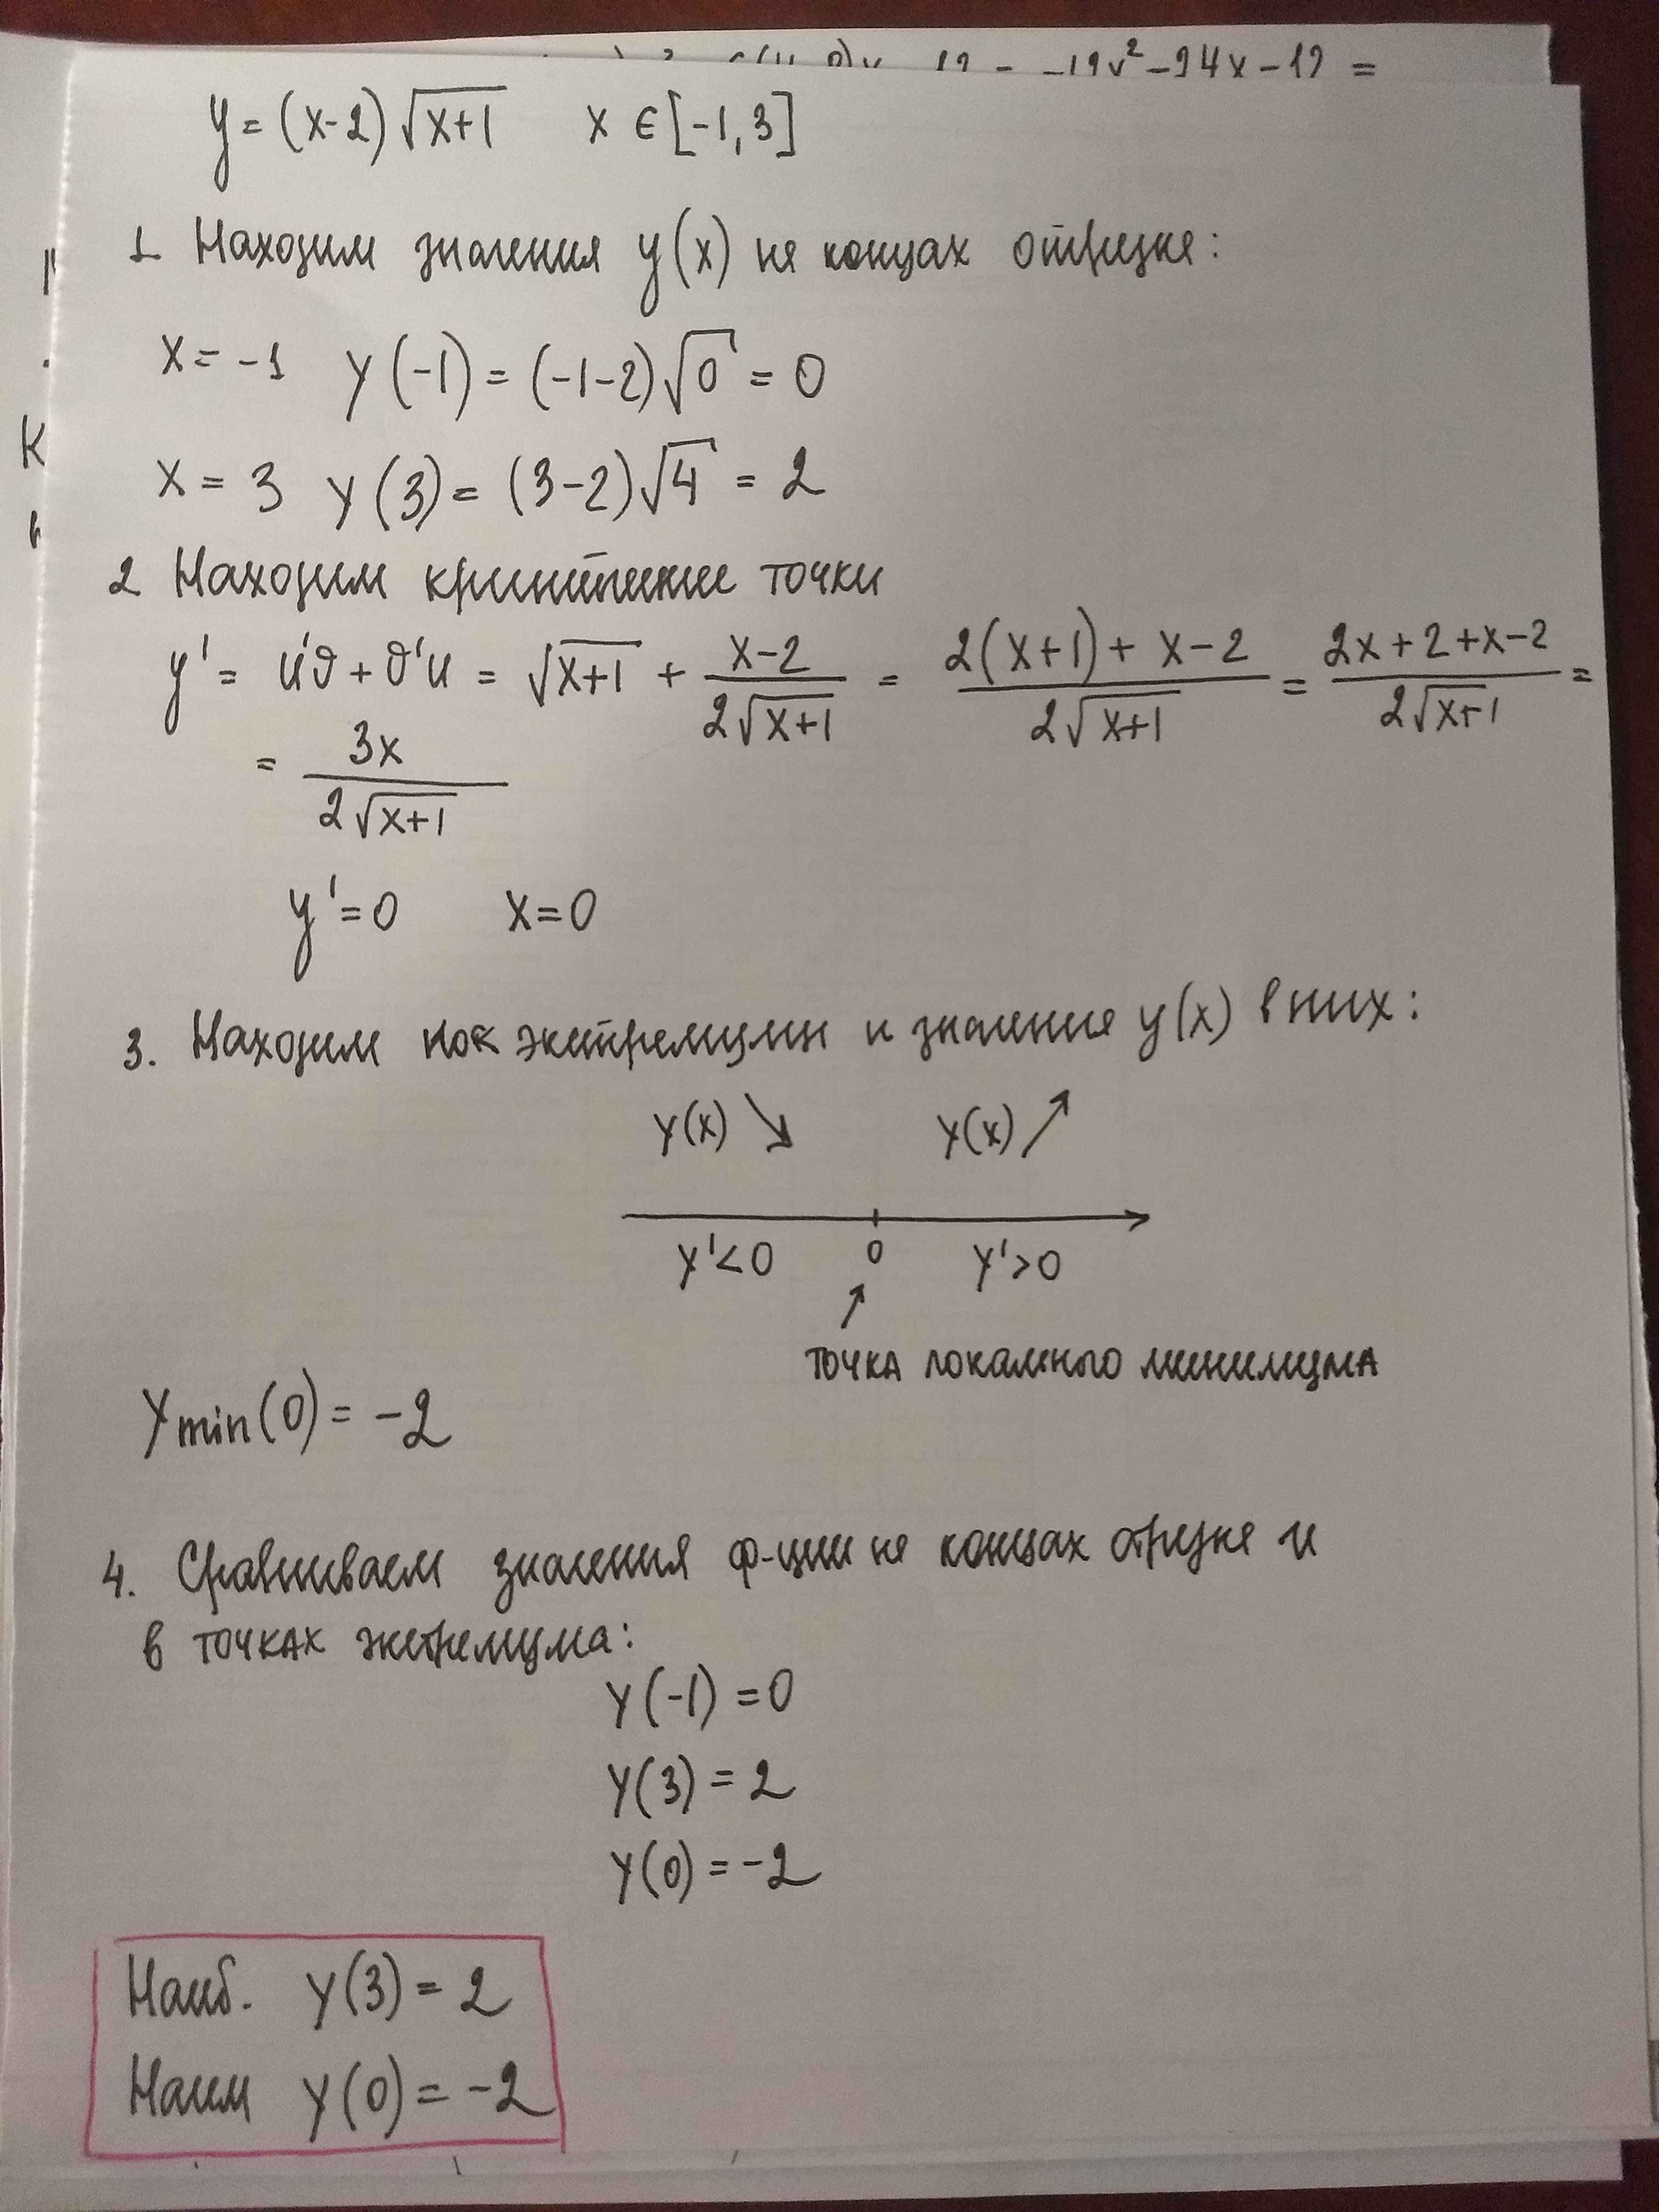 -24x-12 =
y = (x-2)√(x+1)   x ∈ [-1, 3]
1 Находим значения y(x) на концах отрезка:
x = -1   y(-1) = (-1-2)√0 = 0
x = 3   y(3) = (3-2)√4 = 2
2 Находим критические точки
y' = u'v + v'u = √(x+1) + (x-2)/(2√(x+1)) = (2(x+1) + x-2)/(2√(x+1)) = (2x+2+x-2)/(2√(x+1)) =
= 3x/(2√(x+1))
y' = 0   x = 0
3. Находим лок экстремумы и значения y(x) в них:
y(x) ↘   y(x) ↗
y' < 0   0   y' > 0
↑
точка локального минимума
y min(0) = -2
4. Сравниваем значения ф-ции на концах отрезка и
в точках экстремума:
y(-1) = 0
y(3) = 2
y(0) = -2
Наиб. y(3) = 2
Наим y(0) = -2